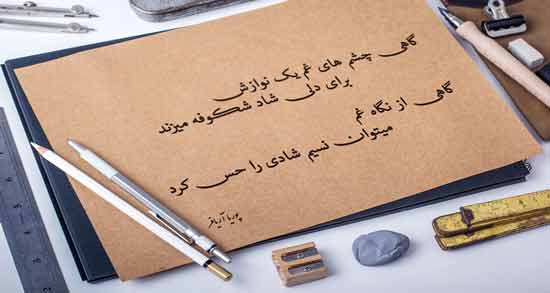 گاهی چشم های غم یک نوازش
برای دلی شاد شکوفه میزند
گاهی از نگاه غم
میتوان نسیم شادی را حس کرد
پوریا آریافر